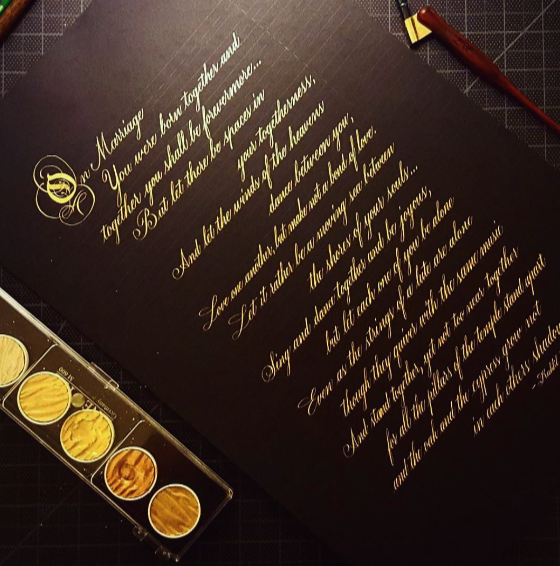 On Marriage
You were born together and
together you shall be forevermore...
But let there be spaces in
your togetherness,
And let the winds of the heavens
dance between you,
Love one another, but make not a bond of love:
Let it rather be a moving sea between
the shores of your souls...
Sing and dance together and be joyous,
but let each one of you be alone
Even as the strings of a lute are alone
though they quiver with the same music
And stand together, yet not too near together
for all the pillars of the temple stand apart
and the oak and the cypress grow not
in each others shadow